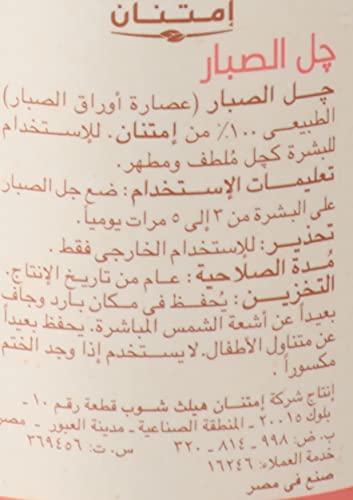 إمتنان
چل الصبار
چل الصبار (عصارة أوراق الصبار)
الطبيعى ١٠٠٪ من إمتنان. للإستخدام
للبشرة كچل مُلطف ومطهر.
تعليمات الإستخدام: ضع جل الصبار
على البشرة من ٣ إلى ٥ مرات يومياً.
تحذير: للإستخدام الخارجى فقط.
مُدة الصلاحية: عام من تاريخ الإنتاج.
التخزين: يُحفظ فى مكان بارد وجاف
بعيداً عن أشعة الشمس المباشرة. يحفظ بعيداً
عن متناول الأطفال. لا يستخدم إذا وجد الختم
مكسوراً.
إنتاج شركة إمتنان هيلث شوب قطعة رقم ١٠ -
بلوك ٢٠٠١٥ - المنطقة الصناعية - مدينة العبور - مصر
ب. ض: ٩٩٨ - ٨١٤ - ٣٢٠ س. ت: ٣٦٩٤٥٦
خدمة العملاء: ١٦٢٤٦
صنع فى مصر